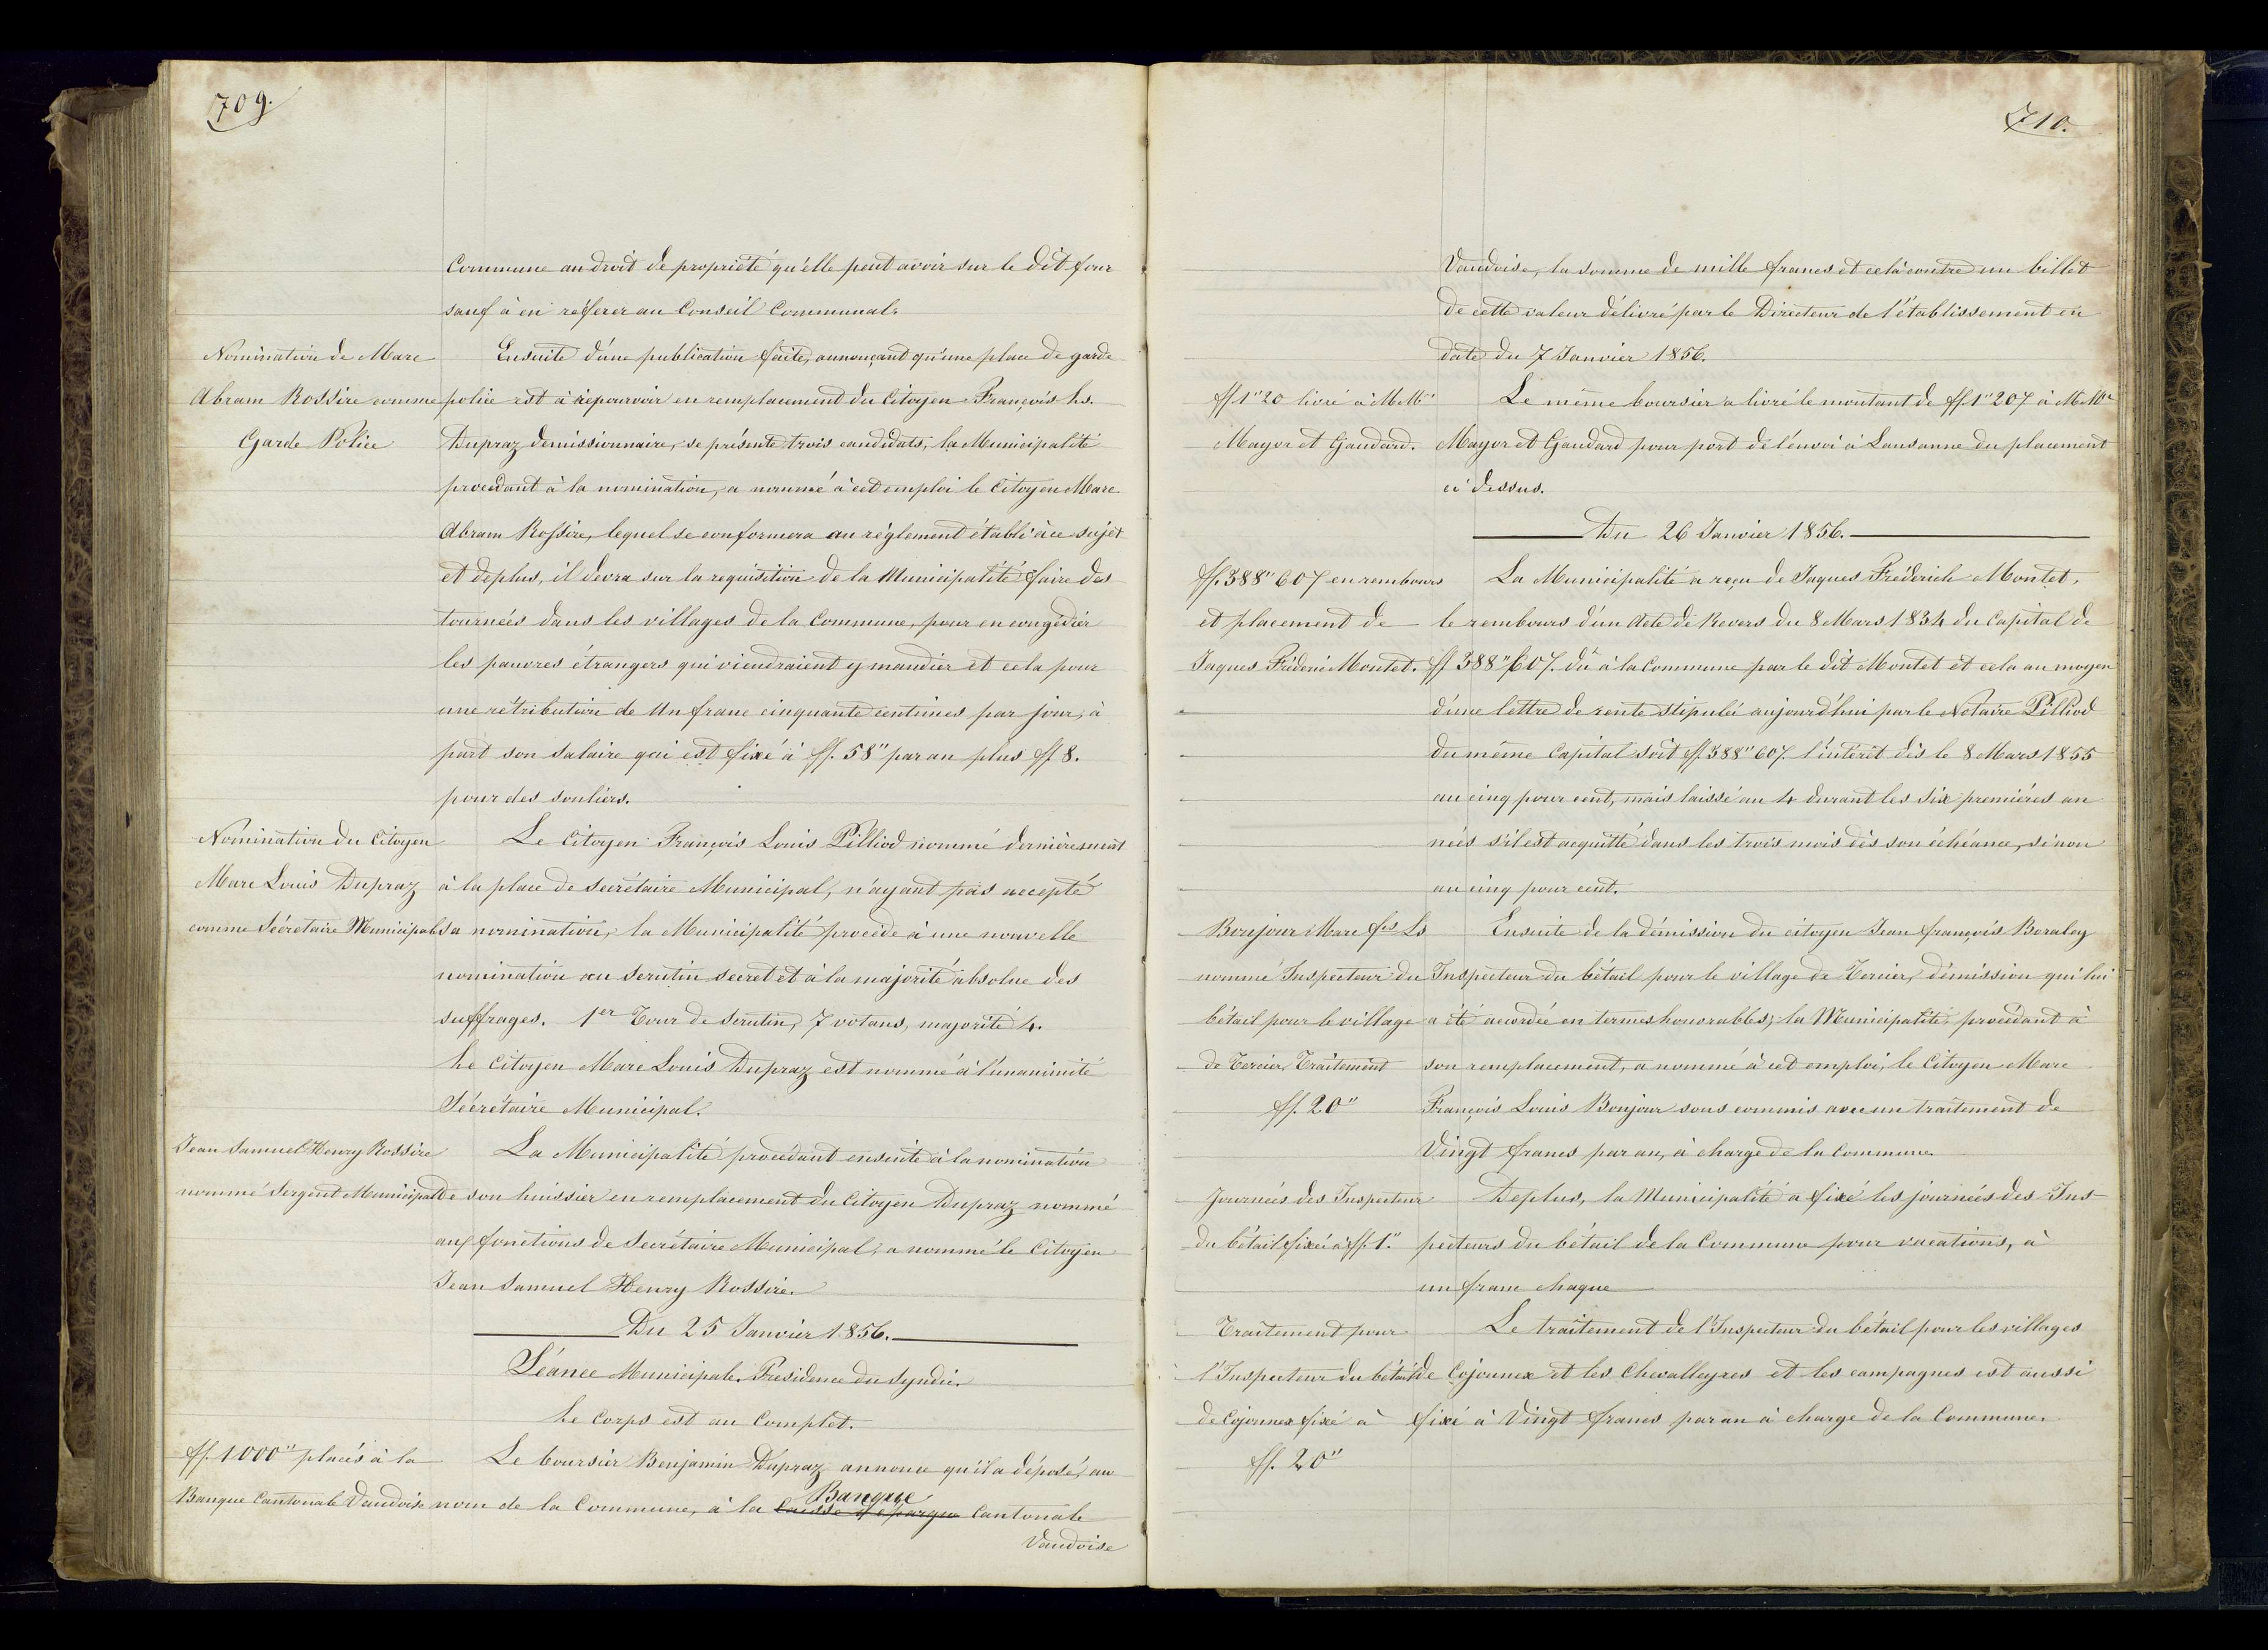 709.
Commune au droit de propriété qu'elle peut avoir sur le dit four
sauf à en réferer au Conseil Communal.
Nomination de Marc
Abram Rossire comme
Garde Police
Ensuite d'une publication faite, annonçant qu'une place de garde
police est à repourvoir en remplacement du Citoyen François Ls.
Dupraz démissionnaire, se présente trois candidats, la Municipalité
procédant à la nomination, a nommé à cet emploi le Citoyen Marc
Abram Rossire, lequel se conformera au règlement établi à ce sujet
et deplus, il devra sur la requisition de la Municipalité faire des
tournées dans les villages de la Commune, pour en congédier
les pauvres étrangers qui viendraient y mandier et cela pour
une rétribution de Un franc cinquante centimes par jour, à
part son salaire qui est fixé à ff. 58" par an plus ff 8.
pour des souliers.
Nomination du Citoyen
Marc Louis Dupraz
comme Sécrétaire Municipal
Le Citoyen François Louis Pilliod nommé dernièrement
à la place de secrétaire Municipal, n'ayant pas accepté
sa nomination, la Municipalité procède à une nouvelle
nomination au scrutin secret et à la majorité absolue des
suffrages. 1er Tour de scrutin, 7 votans, majorité 4.
Le Citoyen Marc Louis Dupraz est nommé à l'unanimité
Sécrétaire Municipal.
Jean Samuel Henry Rossire
nommé Sergent Municipal
La Municipalité procédant ensuite à la nomination
de son huissier en remplacement du Citoyen Dupraz nommé
aux fonctions de Secrétaire Municipal, a nommé le Citoyen
Jean Samuel Henry Rossire.
Du 25 Janvier 1856.
Séance Municipale. Présidence du Syndic.
Le Corps est au Complet.
ff. 1000" placés à la
Banque Cantonale Vaudoise
Le boursier Benjamin Dupraz annonce qu'il a déposé, au
nom de la Commune, à la Caisse d'épargne Banque Cantonale
Vaudoise
710.
Vaudoise, la somme de mille francs et cela contre un billet
de cette valeur délivré par le Directeur de l'établissement en
date du 7 Janvier 1856.
ff 1"20 livré à MMrs
Mayor et Gaudard.
Le même boursier a livré le montant de ff. 1"207 à MMrs
Mayor et Gaudard pour port de l'envoi à Lausanne du placement
ci dessus.
Du 26 Janvier 1856.
ff. 388" 607 en rembours
et placement de
Jaques Fréderic Montet.
La Municipalité a reçu de Jaques Fréderich Montet,
le rembours d'un Acte de Revers du 8 Mars 1834 du Capital de
ff 388" 607. dû à la Commune par le dit Montet et cela au moyen
d'une lettre de rente stipulée aujourd'hui par le Notaire Pilliod
du même Capital soit ff. 388" 607. l'intérêt dès le 8 Mars 1855
au cinq pour cent, mais laissé au 4 durant les six premières an
nées s'il est acquitté dans les trois mois dès son échéance, sinon
au cinq pour cent.
Bonjour Marc fs Ls
nommé Inspecteur du
bétail pour le village
de Tercier, Traitement
ff. 20"
Ensuite de la démission du citoyen Jean françois Boraley
Inspecteur du bétail pour le village de Tercier, démission qui lui
a été acordée en termes honorables, la Municipalité, procédant à
son remplacement, a nommé à cet emploi, le Citoyen Marc
François Louis Bonjour sous commis avec un traitement de
Vingt francs par an, à charge de la Commune.
Journées des Inspecteur
du bétail fixée à ff. 1."
Deplus, la Municipalité a fixé les journées des Ins-
pecteurs du bétail de la Commune pour vacations, à
un franc chaque
Traitement pour
l'Inspecteur du bétail
de Cojonnex fixé à
ff. 20"
Le traitement de l'Inspecteur du bétail pour les villages
de Cojonnex et les Chevalleyres et les campagnes est aussi
fixé à Vingt francs par an à charge de la Commune.